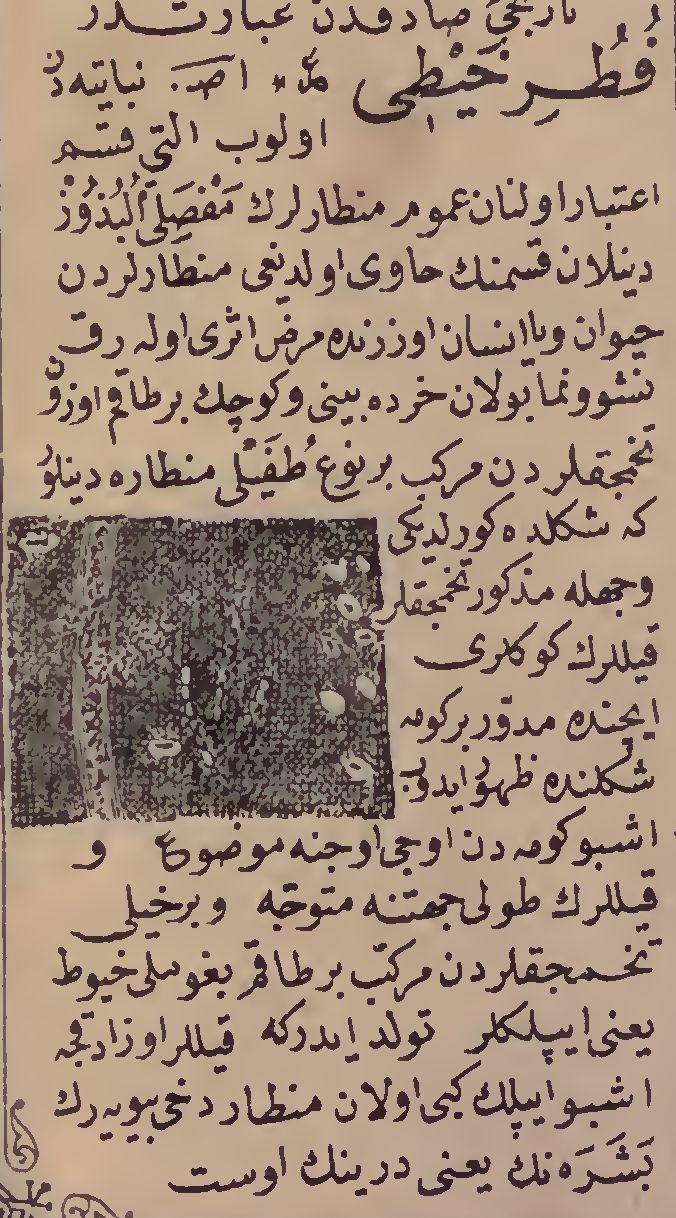 تاریخی صادقدن عبارتدر
فُطُرِ خَيْطِی مذ * اصـ . نباتیه‌دن
اولوب التی قسم
اعتبار اولنان عموم منطارلرك مَفْصَلِیُّ الْبُذُوْرْ
دینلان قسمنك حاوی اولدیغی منطارلردن
حیوان ویا انسان اوزرنده مرض اثری اوله رق
نشوونما بولان خرده بینی و کوچك بر طاقم اوزون
تخمجقلردن مركب بر نوع طُفَيْلی منطاره دینلور
كه شكلده كورلدیكی
وجهله مذكور تخمجقلر
قیللرك كوكلری
ایچنده مدوّر بر كومه
شكلنده ظهور ایدوب
اشبو كومه دن اوجی اوجنه موضوع و
قیللرك طولی جهتنه متوجّه و بر خیلی
تخمجقلردن مركّب بر طاقم بغوملی خیوط
یعنی ایپلكلر تولد ایدركه قیللر اوزادقجه
اشبو ایپلك كبی اولان منطار دخی بیویه رك
بَشَرَه نك یعنی درینك اوست